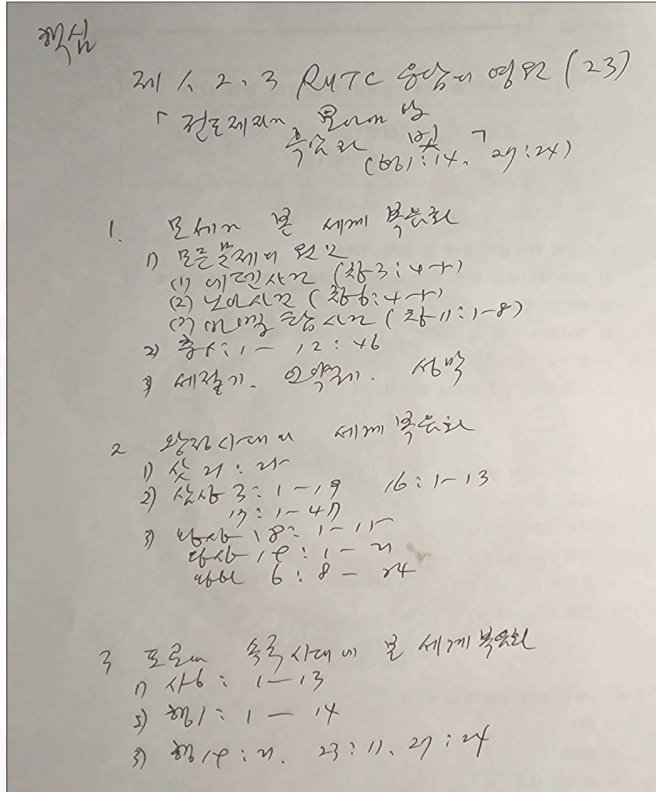 핵심
제 1, 2, 3 RUTC 응답의 영원 (23)
「전도제자 모아야 할
흑암과 빛」
(행1:14, 27:24)
1. 모세가 본 세계복음화
1) 모든 문제의 원인
(1) 에덴사건 (창3:4-5)
(2) 노아사건 (창6:4-5)
(3) 바벨탑사건 (창11:1-8)
2) 출5:1-12:46
3) 세절기, 언약궤, 성막
2 왕정시대의 세계복음화
1) 삿 21:25
2) 삼상 3:1-19 16:1-13
17:1-47
3) 왕상 18:1-15
왕상 19:1-21
왕하 6:8-24
3 포로와 속국시대에 본 세계복음화
1) 사6:1-13
2) 행1:1-14
3) 행19:21, 23:11, 27:24